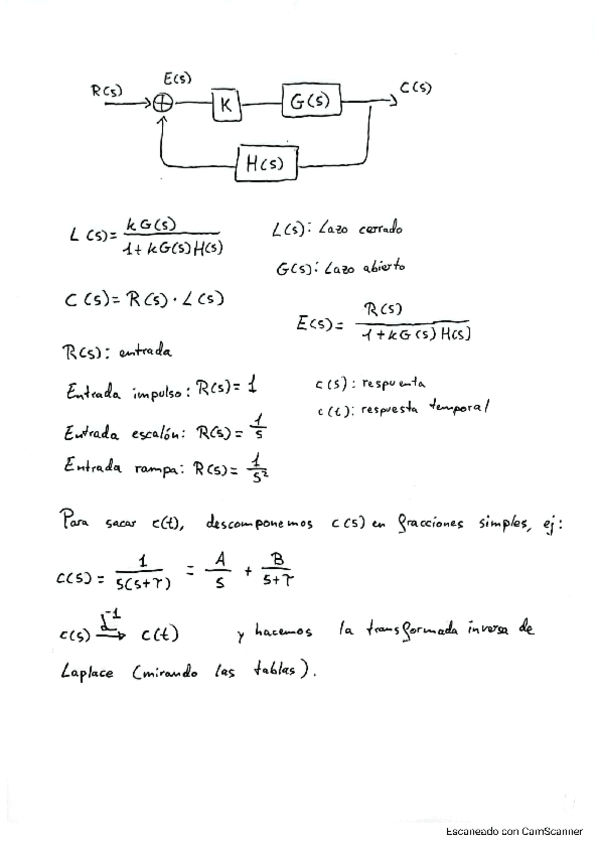 R(s) E(s) K G(s) C(s)
H(s)
L(s) = kG(s) / 1 + kG(s)H(s)
L(s): Lazo cerrado
G(s): Lazo abierto
C(s) = R(s) · L(s)
E(s) = R(s) / 1 + kG(s)H(s)
R(s): entrada
Entrada impulso: R(s) = 1
c(s): respuenta
c(t): respuesta temporal
Entrada escalón: R(s) = 1/s
Entrada rampa: R(s) = 1/s²
Para sacar c(t), descomponemos c(s) en fracciones simples, ej:
c(s) = 1 / s(s+τ) = A/s + B/s+τ
c(s) L⁻¹→ c(t) y hacemos la transformada inversa de
Laplace (mirando las tablas).
Escaneado con CamScanner